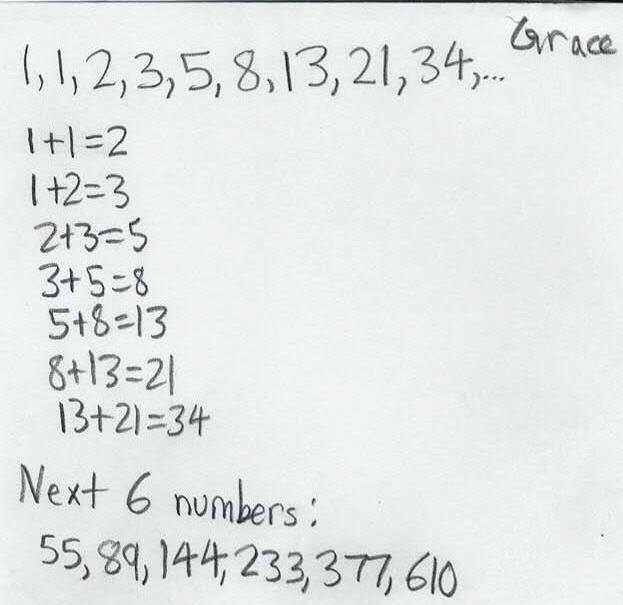 Grace
1,1,2,3,5,8,13,21,34,...
1+1=2
1+2=3
2+3=5
3+5=8
5+8=13
8+13=21
13+21=34
Next 6 numbers:
55,89,144,233,377,610